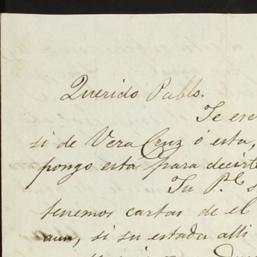 Querido Pablo.
Te es
si de Vera Cruz ó esta,
pongo esta para decirte
Tu P.e
tenemos cartas de el
aun, si su estada alli